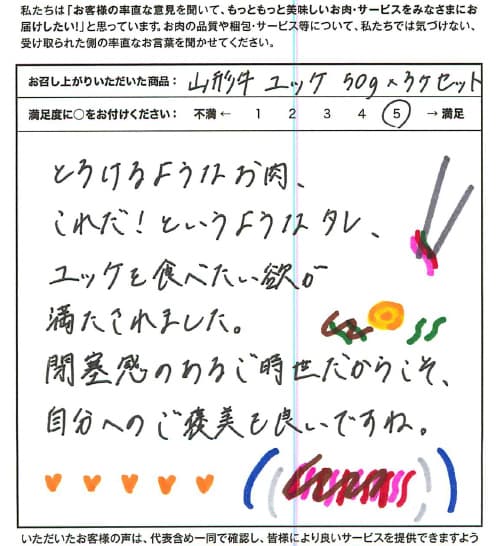 私たちは「お客様の率直な意見を聞いて、もっともっと美味しいお肉・サービスをみなさまにお
届けしたい!」と思っています。お肉の品質や梱包・サービス等について、私たちでは気づけない、
受け取られた側の率直なお言葉を聞かせてください。
お召し上がりいただいた商品: 山形牛 ユッケ 50g×3ケセット
満足度に○をお付けください: 不満 ← 1 2 3 4 5 → 満足
とろけるようなお肉、
これだ!というようなタレ、
ユッケを食べたい欲が
満たされました。
閉塞感のあるご時世だからこそ、
自分へのご褒美も良いですね。
いただいたお客様の声は、代表含め一同で確認し、皆様により良いサービスを提供できますよう